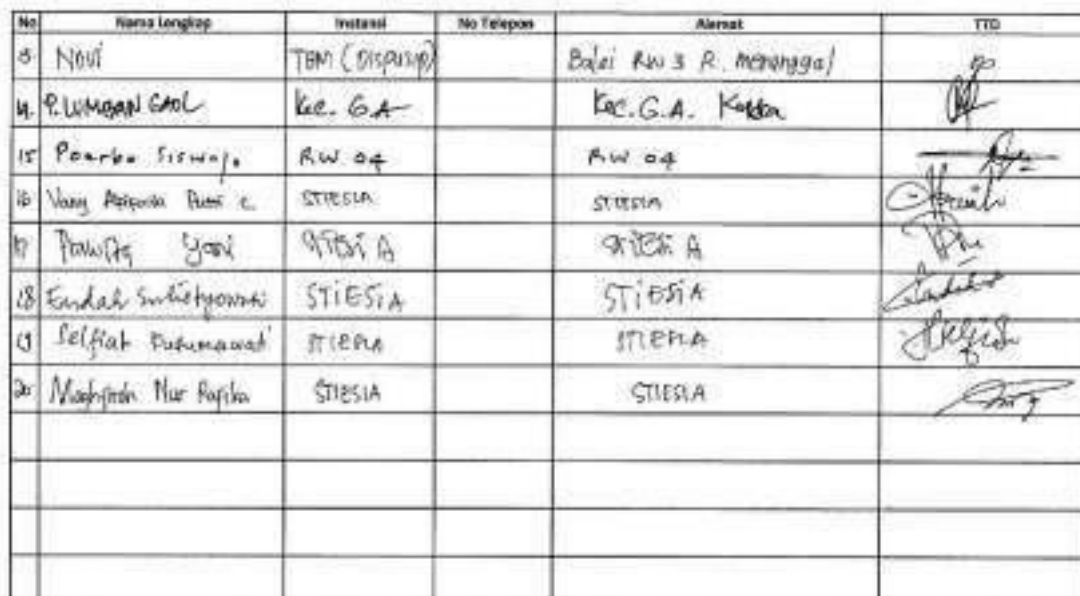 No Nama Lengkap Instansi No Telepon Alamat TTD
3 Novi TBM (Dispusip) Balai RW 3 R. Menanggal
4. P. LUMBAN GAOL Kec. G.A Kec. G.A.
15 Poerbo Siswoj. RW 04 RW 04
16 Putri C. STIESIA STIESIA
17 Yani STIESIA STIESIA
18 Endah Sulistyowati STIESIA STIESIA
19 Selfiah Kusumawati STIESIA STIESIA
20 Maghfiroh Nur Rafika STIESIA STIESIA